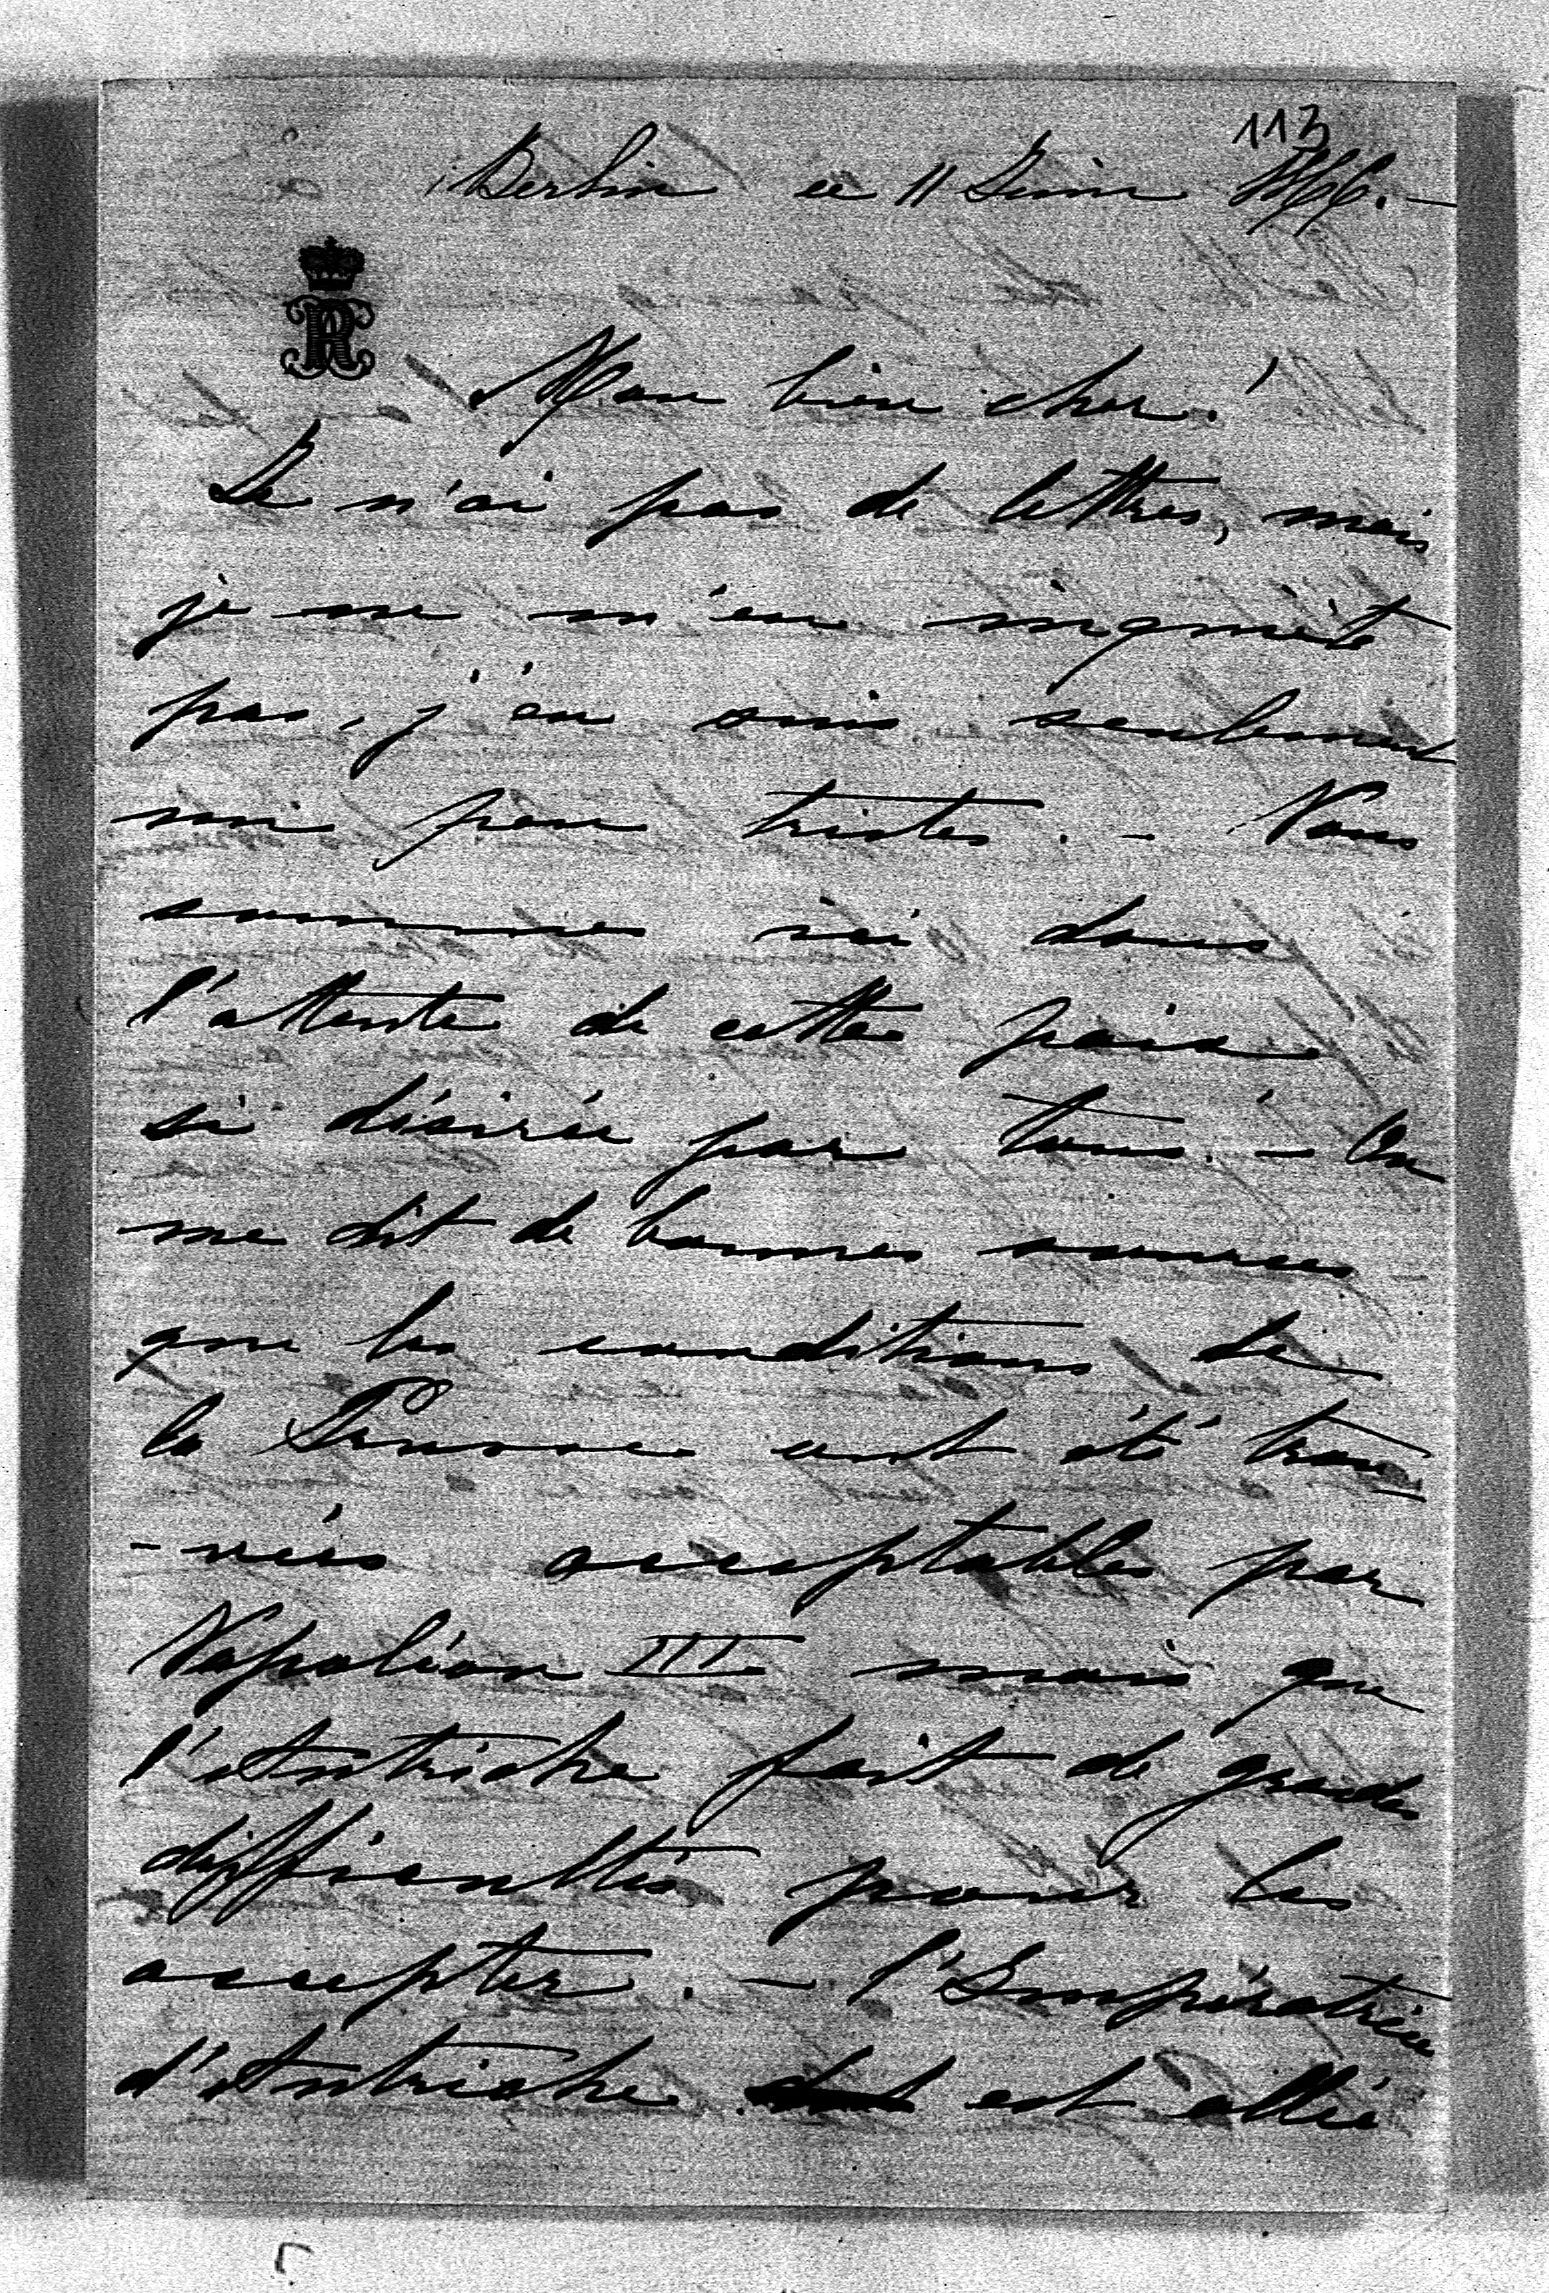 113
Berlin ce 11 Juin 1866. —
R
Mon bien cher!
Je n'ai pas de lettres, mais
je ne m'en inquiète
pas, j'en suis seulement
un peu tristes. — Nous
sommes ici dans
l'attente de cette paix
si désirée par tous. — On
me dit de bonnes sources
que les conditions de
la Prusse ont été trou-
-vées acceptables par
Napoléon III mais que
l'Autriche fait de grandes
difficultés pour les
accepter. — l'Impératrice
d'Autriche est allée